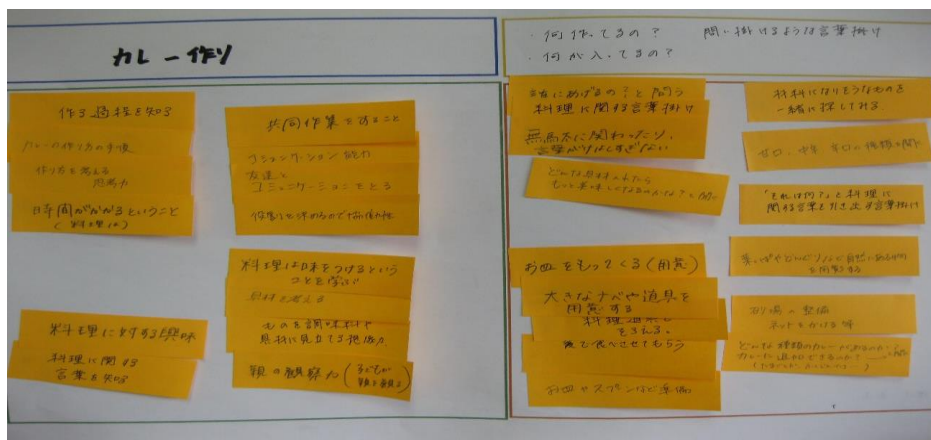 カレー作り
・何作ってるの？ 問い掛けるような言葉掛け
・何が入ってるの？
作る過程を知る
カレーの作り方の手順
作り方を考える
思考力
時間がかかるということ
(料理は)
料理に対する興味
料理に関する
言葉を知る
共同作業をすること
コミュニケーション能力
友達と
コミュニケーションをとる
役割を決めるので協調性
料理は味をつけるという
ことを学ぶ
具材を考える
ものを調味料や
具材に見立てる発想力
親の観察力(子どもが
親を観る)
誰にあげるの？と問う
料理に関する言葉掛け
無駄に関わったり、
言葉がけはしすぎない
どんな具材入れたら
もっと美味しくなるのかな？と問い
お皿をもってくる(用意)
大きなナベや道具を
用意する
料理道具し
をそろえる。
後で食べさせてもらう
お皿やスプーンなど準備
材料になりそうなものを
一緒に探してみる
甘口、中辛、辛口の種類を聞く
「それは何？」と料理に
関する言葉を引き出す言葉掛け
葉っぱやどんぐりなど自然にある物
を用意する
砂場の整備
ネットをかける等
どんな種類のカレーがあるのか？
カレーに追加できるのか？